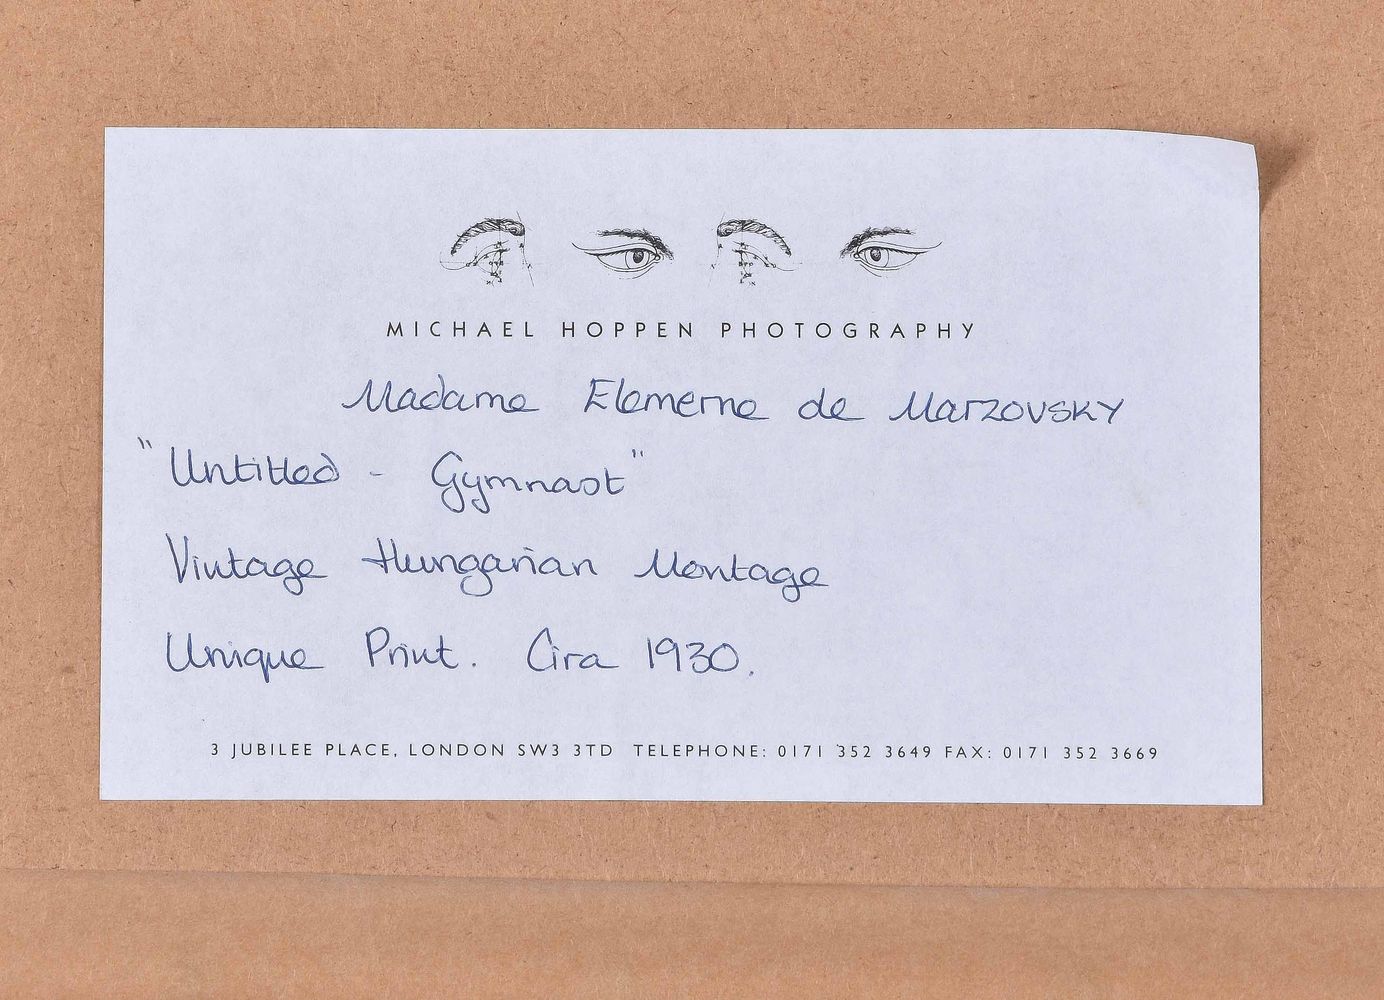 MICHAEL HOPPEN PHOTOGRAPHY
Madame Elemerne de Marzovsky
"Untitled - Gymnast"
Vintage Hungarian Montage
Unique Print. Cira 1930.
3 JUBILEE PLACE, LONDON SW3 3TD TELEPHONE: 0171 352 3649 FAX: 0171 352 3669